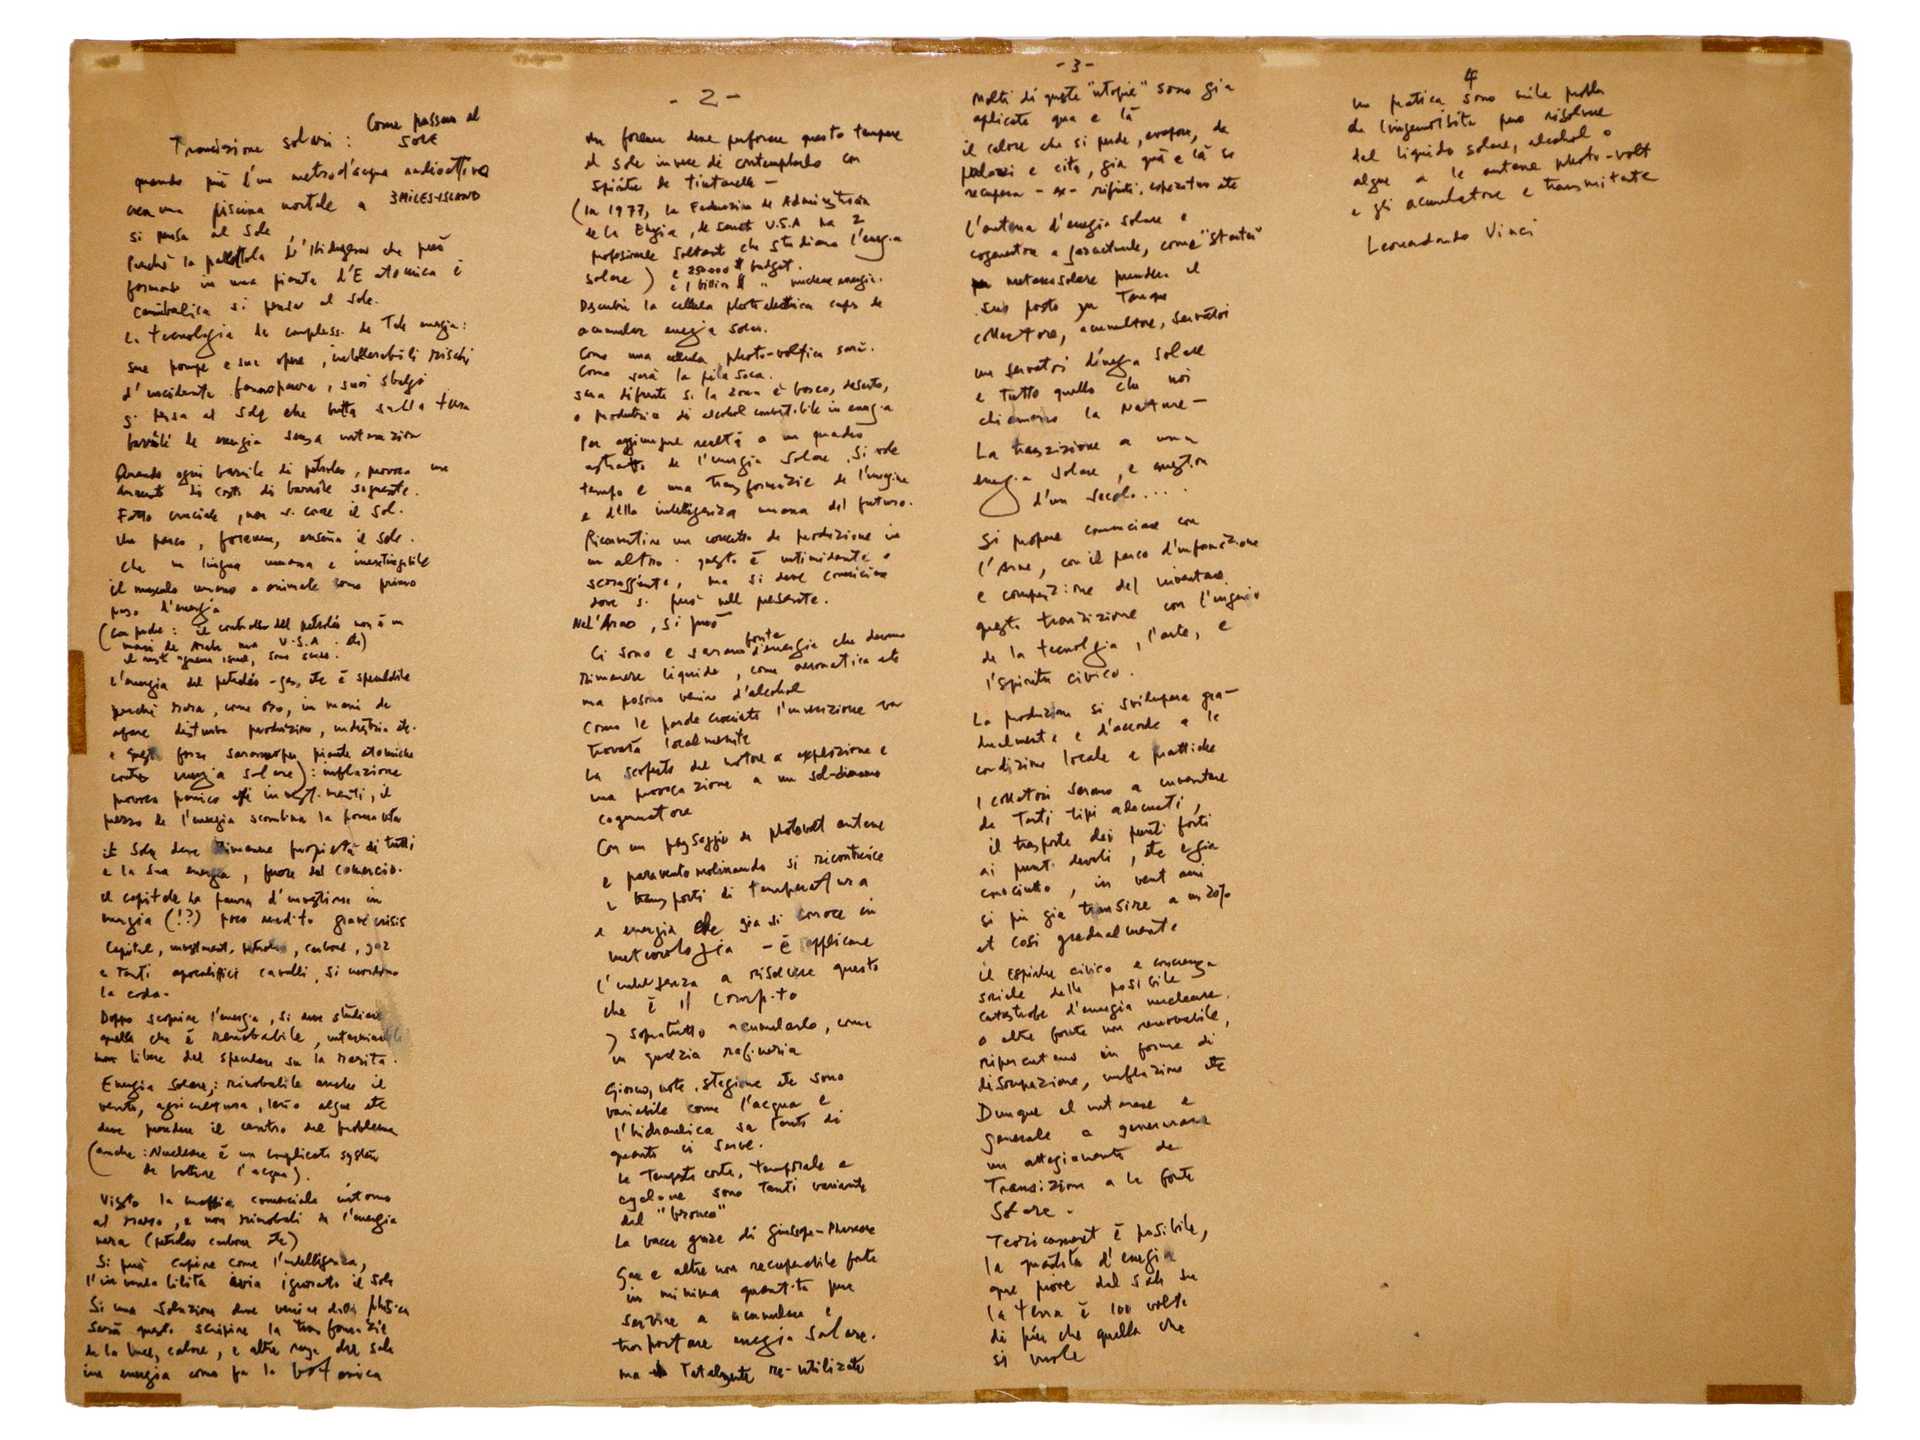 Come passar al
Transizione solari : SOLE
quando più l'un metro d'acqua radioattiva
crea una piscina mortale a 3MILES-ISLAND
si pensa al Sole,
Perchè la pallottola di l'hidrogeno che può
formarsi in una pianta d'E atomica è
canibalica si pensa al sole.
la tecnologia de
sue pompe e sue opere, intollerabili rischi
d'incidente, suoi sbagli
si pensa al Sole che butta sulla terra
barili de energia senza
Quando ogni barile di petroleo, provoca un
aumento di costi di barile siguente.
Fatto cruciale, non si cose il Sol.
Un parco, forum, enseña il sole.
che in lingua umana e inestinguibile
il muscolo umano o animale come primo
passo d'energia
(con poche: il controllo del petroleo non è in
mani de Arabi ma U.S.A. etc)
L'energia del petroleo - gas, etc è spendibile
perchè rara, come oro, in mani de
disturba produzione, industria etc.
e queste forze piante atomiche
contro energia solare): inflazione
provoca panico investimenti, il
prezzo de l'energia scombina la
il Sole deve rimanere propietà di tutti
e la sua energia, fuore del comercio.
il capitale ha paura d'investirse in
energia (!?) poco credito grave crisis
Capital, investment, petroleo, carbone, gaz
e tanti apocaliffici cavalli, si mordono
la coda.
Doppo scoprire l'energia, si deve studiare
quella che è renobabile, interminabile
non libere del speculare su la rarità.
Energia Solare; rinobabile anche il
vento, agricultura, leño algue etc
deve prendere il centro del problema
(anche: Nucleare è un complicato system
de bollire l'acqua).
Visto la maffia comerciale intorno
al raro, e non rinobabili de l'energia
nera (petroleo carbone etc)
Si può capire come l'intelligenza,
l'invundabilita avia ignorato il Sole
Si una soluzione deve venire dalla phisica
sarà questo scoprire la transformazie
de la luce, calore, e altre raya del sole
in energia como fa la botanica
- 2 -
Un forum deve perforare questo tempore
il sole invece di contemplarlo con
spirito de tintarella -
(In 1977, la Federazion de Administration
de la Energia, de sanet U.S.A ha 2
profesionale soltanto che studiano l'energia
solare) e 25000 $ budget.
e 1 billion $ " nucleare energia.
Descubrir la cellula photo elettrica capace de
acumular energia solar.
Como una cellula photo-voltica sarà.
Como sarà la pila seca.
sera diferente si la zona è bosco, deserto,
o produtrice di alcohol combustibile in energia
Per aggiungere realtà a un quadro
astratto de l'energia Solare. Si vole
tempo e una transformazie de l'imagine
e della intelligenza umana del futuro.
Riconvertire un concetto de produzione in
un altro. questo è intimidante e
scoraggiante, ma si deve comiciare
dove si può nell presente.
Nel'Arno, si può
Ci sono e saranno fonte d'energia che devono
rimanere liquide, come aeronautica etc
ma posono venire d'alcohol
Como le parole crociate l'invenzione va
trovata localmente
La scoperta del motore a explosione è
una provocazione a un sol-dinamo
cogeneratore
Con un paysaggio de photovolt antene
e paravento molinando si ricostruisce
i transporti di temperatura
e energia che già si conosce in
meteorologia - è applicare
l'intelligenza a risolvere questo
che è il compito
y sopratutto acumularlo, come
in qualzia rafineria
Giorno, note, stagione etc sono
variabile come l'acqua e
l'hidraulica sa tanto di
quanto ci serve.
Le tempeste corte, temporale e
cyclone sono tanti variante
del "bronco"
Le vacce grase di Giuseppe-Pharaone
Gas e altre non recuperabile fonte
in minima quantita pure
servire a acumulare e
trasportare energia solare.
ma Totalmente re-utilizate
- 3 -
Molti di queste "utopie" sono gia
aplicate qua e là
il calore che si perde, evapora, da
palazzi e cità, già quà e là se
recupera - ex - rifiuti, coperativa etc
L'antena d'energia solare e
cogeneratore a, come "statua"
per metarea solare prendera il
suo posto
collettore, acumultore, servatori
un servatori d'energia solare
e tutto quello che noi
chiamiamo la Nature -
La transizione a una
energia solare, e question
d'un secolo....
Si propone cominciare con
l'Arne, con il parco d'informazione
e comparizione del inventario
questa transizione con l'ingenio
de la tecnolgia, l'arte, e
l'spirito civico.
La produzione si svilupara gra-
dualmente e d'accordo a le
condizione locale e prattiche
I collatori sarano a inventare
de tanti tipi adecuati,
il trasporte dei punti forti
ai punti devoli, etc e già
conosciuto, in vent ani
si può già transire a un 20%
et così gradualmente
il espirito civico e conscienza
sociale della posibile
catastrofe d'energia nucleare.
o altre fonte non renovabile,
ripercutono in forma di
disocupazione, inflazione etc
Dunque el interese e
generale a generare
un atteggiamento de
Transizione a la fonte
Solare -
Teoricament è posibile,
la quantita d'energia
que piove dal sole su
la terra è 100 volte
di più che quella che
si vuole
4
In pratica sono mile problem
che l'ingeniosità puo risolvere
del liquido solare, alcohol o
algue a le antene photo-volt
e gli acumulatore e transmitente
Leonardondo Vinci